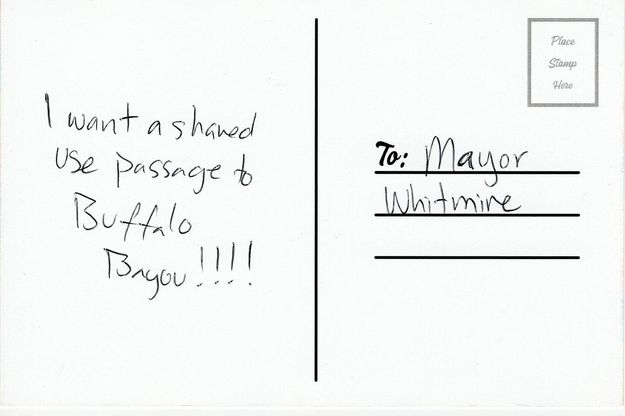 I want a shared
use passage to
Buffalo
Bayou!!!!
Place
Stamp
Here
To: Mayor
Whitmire